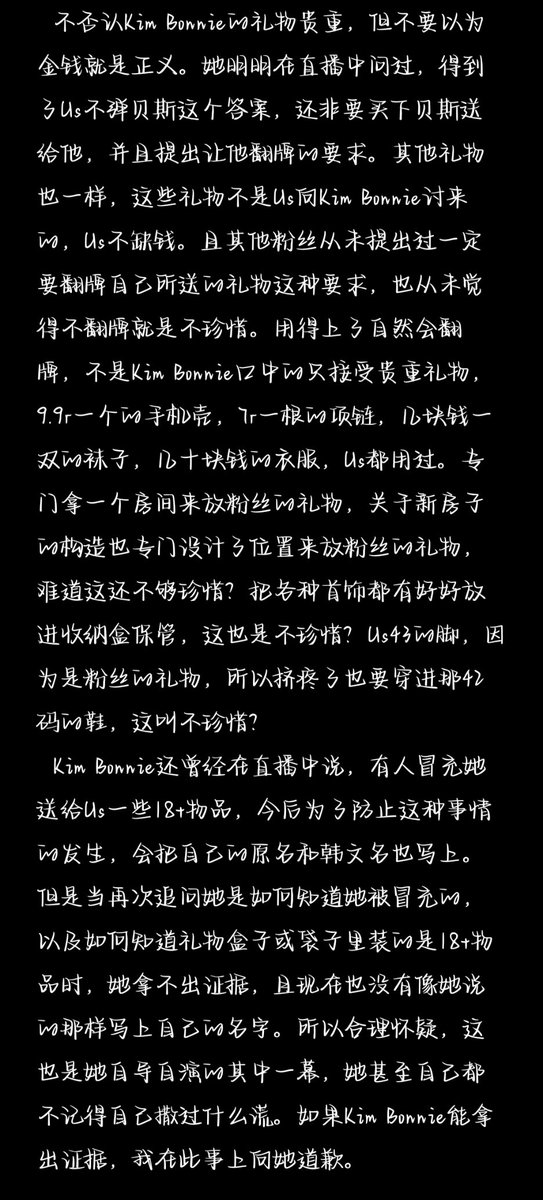 不否认Kim Bonnie的礼物贵重，但不要以为
金钱就是正义。她明明在直播中问过，得到
了Us不弹贝斯这个答案，还非要买下贝斯送
给他，并且提出让他翻牌的要求。其他礼物
也一样，这些礼物不是Us向Kim Bonnie讨来
的，Us不缺钱。且其他粉丝从未提出过一定
要翻牌自己所送的礼物这种要求，也从未觉
得不翻牌就是不珍惜。用得上了自然会翻
牌，不是Kim Bonnie口中的只接受贵重礼物，
9.9r一个的手机壳，7r一根的项链，几块钱一
双的袜子，几十块钱的衣服，Us都用过。专
门拿一个房间来放粉丝的礼物，关于新房子
的构造也专门设计了位置来放粉丝的礼物，
难道这还不够珍惜？把各种首饰都有好好放
进收纳盒保管，这也是不珍惜？Us43的脚，因
为是粉丝的礼物，所以挤疼了也要穿进那42
码的鞋，这叫不珍惜？
Kim Bonnie还曾经在直播中说，有人冒充她
送给Us一些18+物品，今后为了防止这种事情
的发生，会把自己的原名和韩文名也写上。
但是当再次追问她是如何知道她被冒充的，
以及如何知道礼物盒子或袋子里装的是18+物
品时，她拿不出证据，且现在也没有像她说
的那样写上自己的名字。所以合理怀疑，这
也是她自导自演的其中一幕，她甚至自己都
不记得自己撒过什么谎。如果Kim Bonnie能拿
出证据，我在此事上向她道歉。